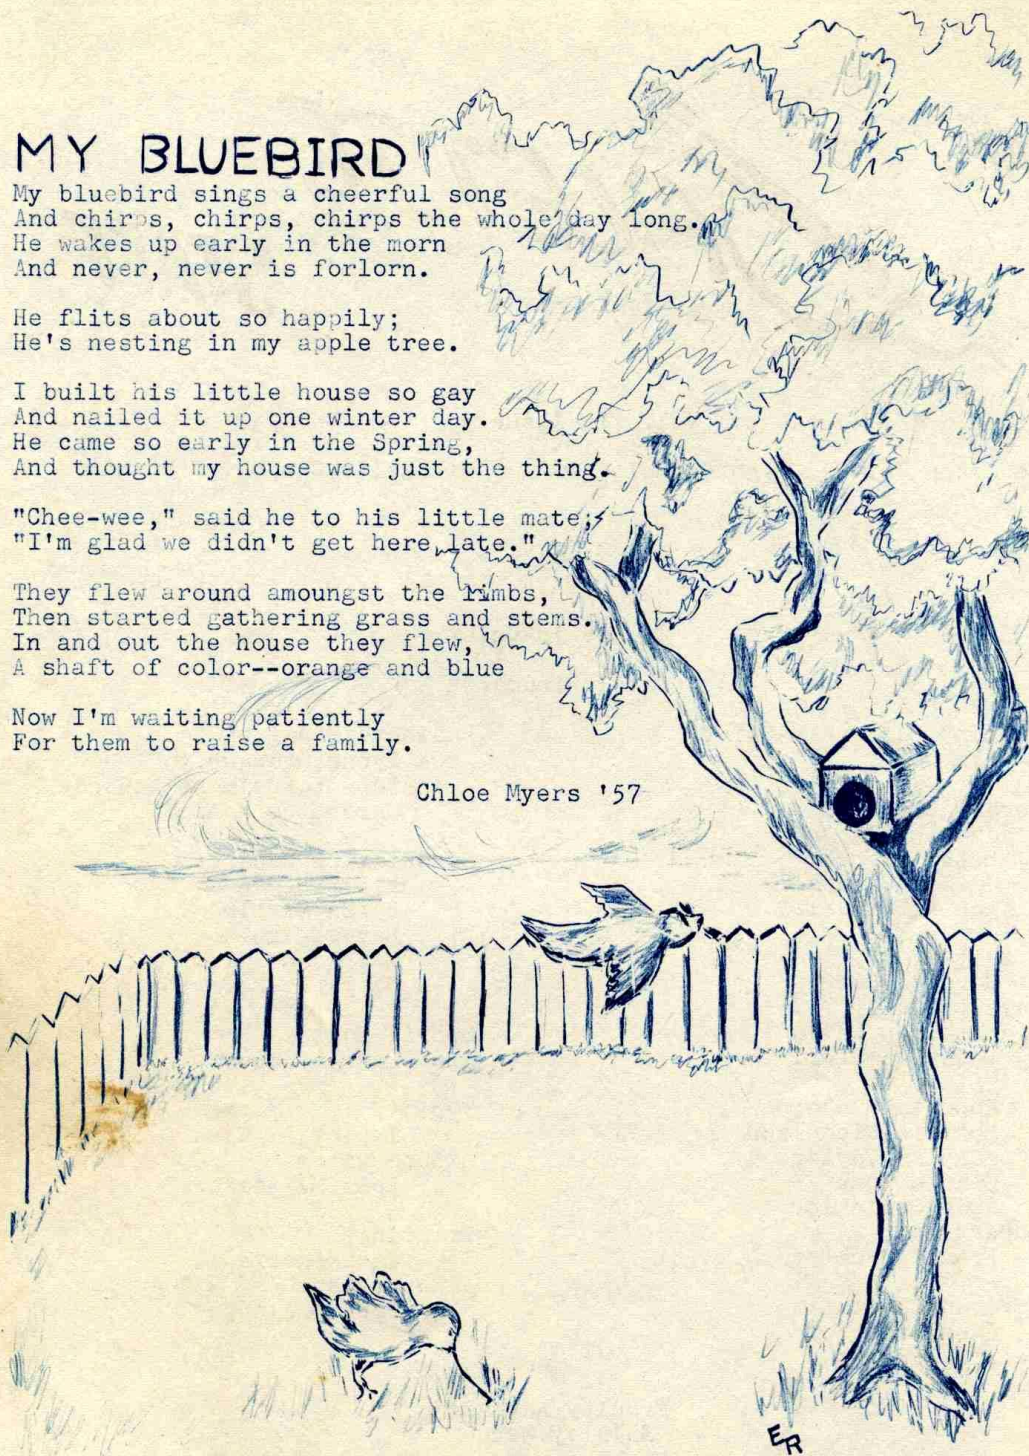 MY BLUEBIRD
My bluebird sings a cheerful song
And chirps, chirps, chirps the whole day long.
He wakes up early in the morn
And never, never is forlorn.
He flits about so happily;
He's nesting in my apple tree.
I built his little house so gay
And nailed it up one winter day.
He came so early in the Spring,
And thought my house was just the thing.
"Chee-wee," said he to his little mate;
"I'm glad we didn't get here late."
They flew around amoungst the limbs,
Then started gathering grass and stems.
In and out the house they flew,
A shaft of color--orange and blue
Now I'm waiting patiently
For them to raise a family.
Chloe Myers '57
ER